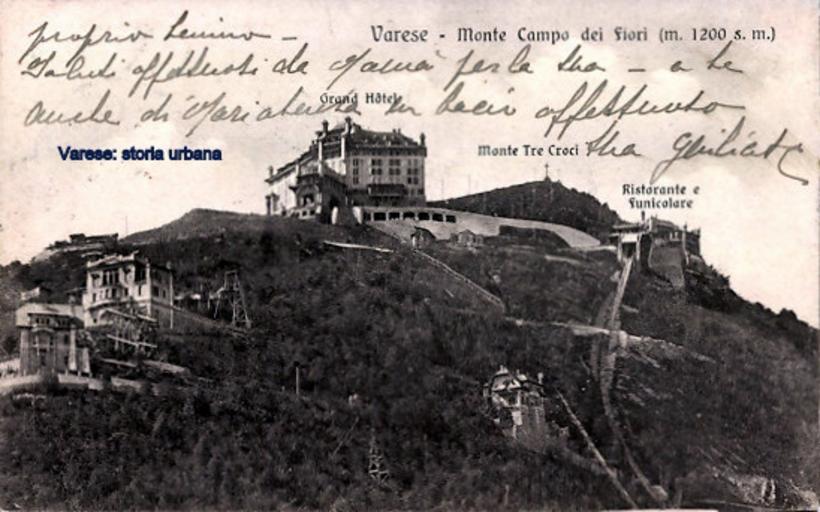 Varese - Monte Campo dei Fiori (m. 1200 s. m.)
proprio
Saluti affettuosi da Mamà per la tua - a te
anche di un bacio affettuoso
Grand Hôtel
tua
Varese: storia urbana
Monte Tre Croci
Ristorante e
Funicolare